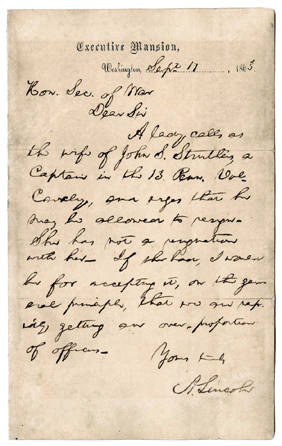 Executive Mansion,
Washington, Sept. 17, 1863.
Hon. Sec. of War
Dear Sir
A lady calls as
the wife of John S. Struthers, a
Captain in the 13. Penn. Vol-
Cavalry, and urges that he
may be allowed to resign.
She has not a resignation
with her. If she had, I would
be for accepting it, on the gen-
eral principle, that we are rap-
idly getting an over-proportion
of officers.
Yours truly
A. Lincoln